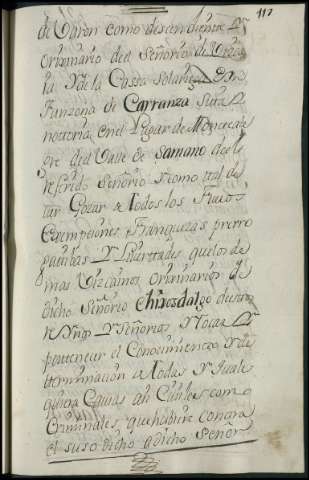 117
de Varon como descendiente Y
Originario del Señorio de Vizca
ia Y de la Casa Solar
Infanzona de Carranza sita
notoria en el Lugar de
del Valle de Samano de el
referido Señorio Y como tal de
var Gozar de todos los Fueros
Exempciones Franquezas prerro
gatibas Y Livertades que los de
mas Vizcainos Originarios de
dicho Señorio Chijosdalgo destos
Reynos Y Señorios Y tocar
pertenecer el Conocimiento Y de
terminacion de todas Y quales
quiera Causas asi Ciuiles como
Criminales que hubiere contra
el suso dicho a dicho Señor